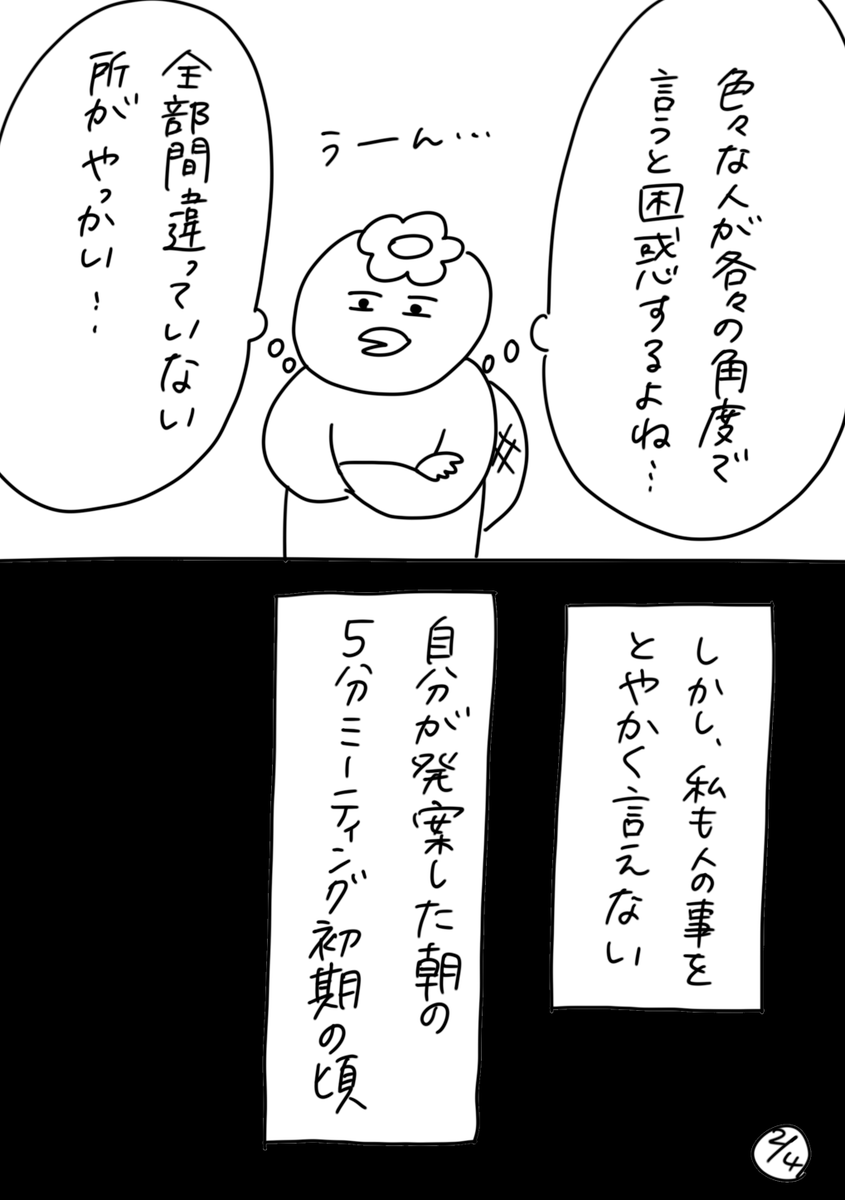 色々な人が各々の角度で
言うと困惑するよね…
うーん…
全部間違っていない
所がやっかい…
しかし、私も人の事を
とやかく言えない
自分が発案した朝の
5分ミーティング初期の頃
2/4